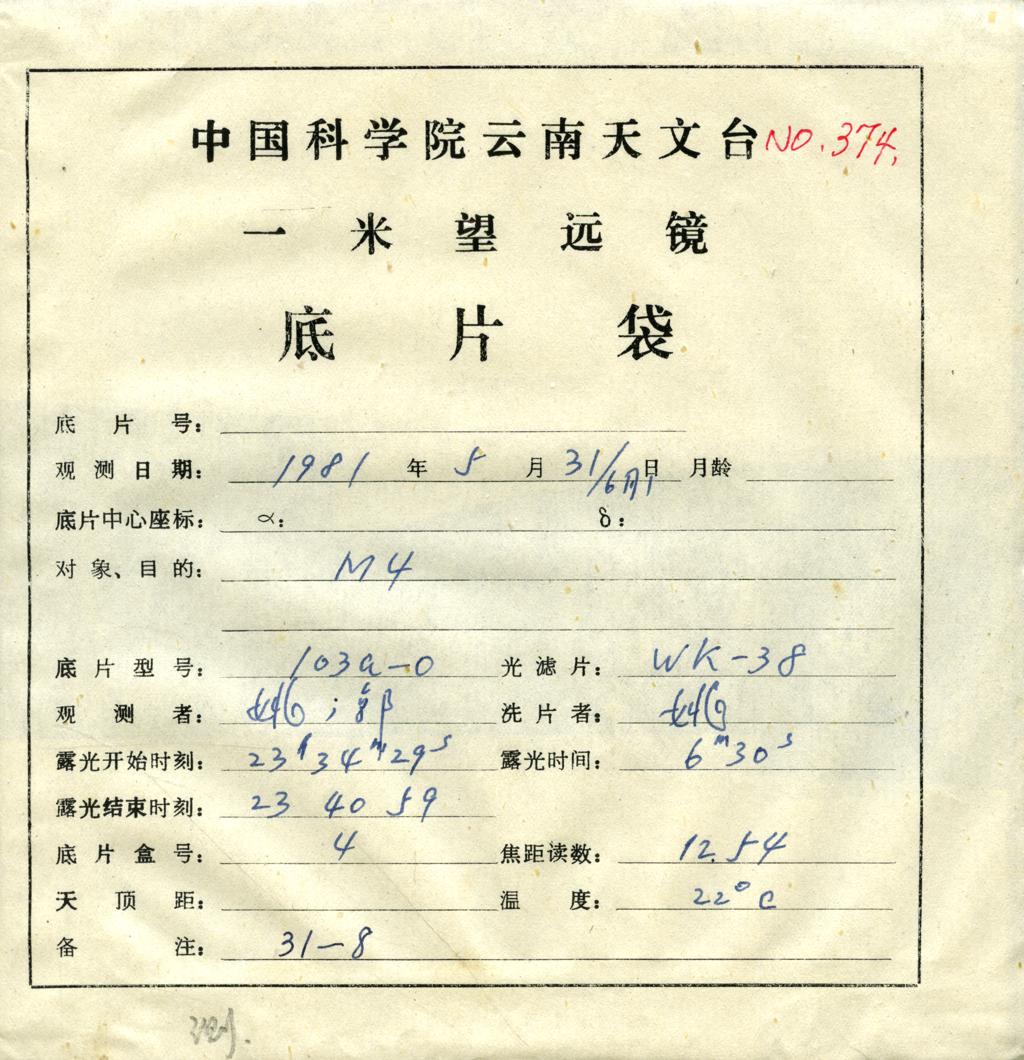 中国科学院云南天文台 NO.374.
一米望远镜
底片袋
底片号：
观测日期： 1981 年 5 月 31/6月1 日 月龄
底片中心座标： α： δ：
对象、目的： M4
底片型号： 103a-O 光滤片： WK-38
观测者： 洗片者：
露光开始时刻： 23h34m29s 露光时间： 6m30s
露光结束时刻： 23 40 59
底片盒号： 4 焦距读数： 12.54
天顶距： 温度： 22°C
备注： 31-8